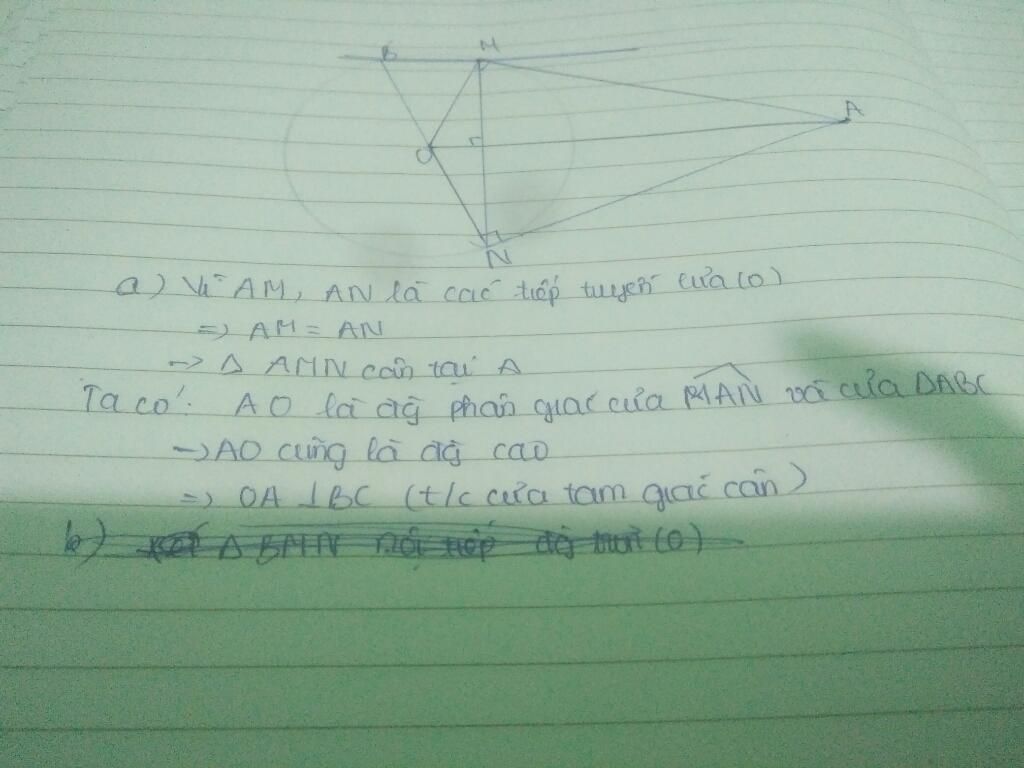 B M
A
O
N
a) Vì AM, AN là các tiếp tuyến của (O)
=> AM = AN
-> Δ AMN cân tại A
Ta có: AO là đg phân giác của MAN và của ΔABC
-> AO cũng là đg cao
=> OA ⊥ BC (t/c của tam giác cân)
b) Δ BMN nội tiếp đg tròn (O)